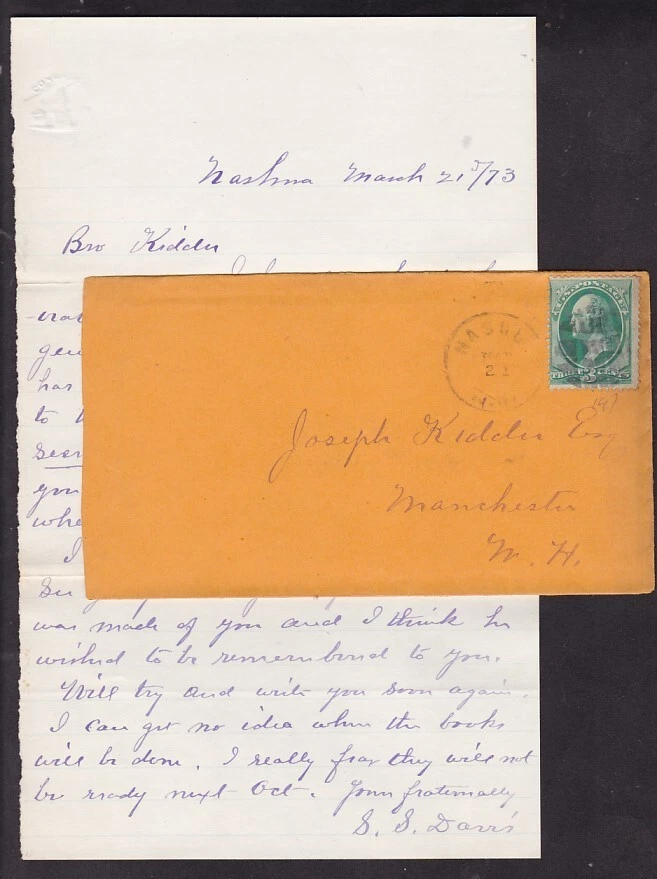 Nashua March 21st/73
Bro Kidder
gen
has
to
you
whe
I
was made of you and I think he
wished to be remembered to you.
Will try and write you soon again.
I can get no idea when the books
will be done. I really fear they will not
be ready next Oct. Yours fraternally
S. S. Davis
U.S. POSTAGE
THREE 3 CENTS
NASHU
MAR
21
N.H.
Joseph Kidder Esq
Manchester
N. H.